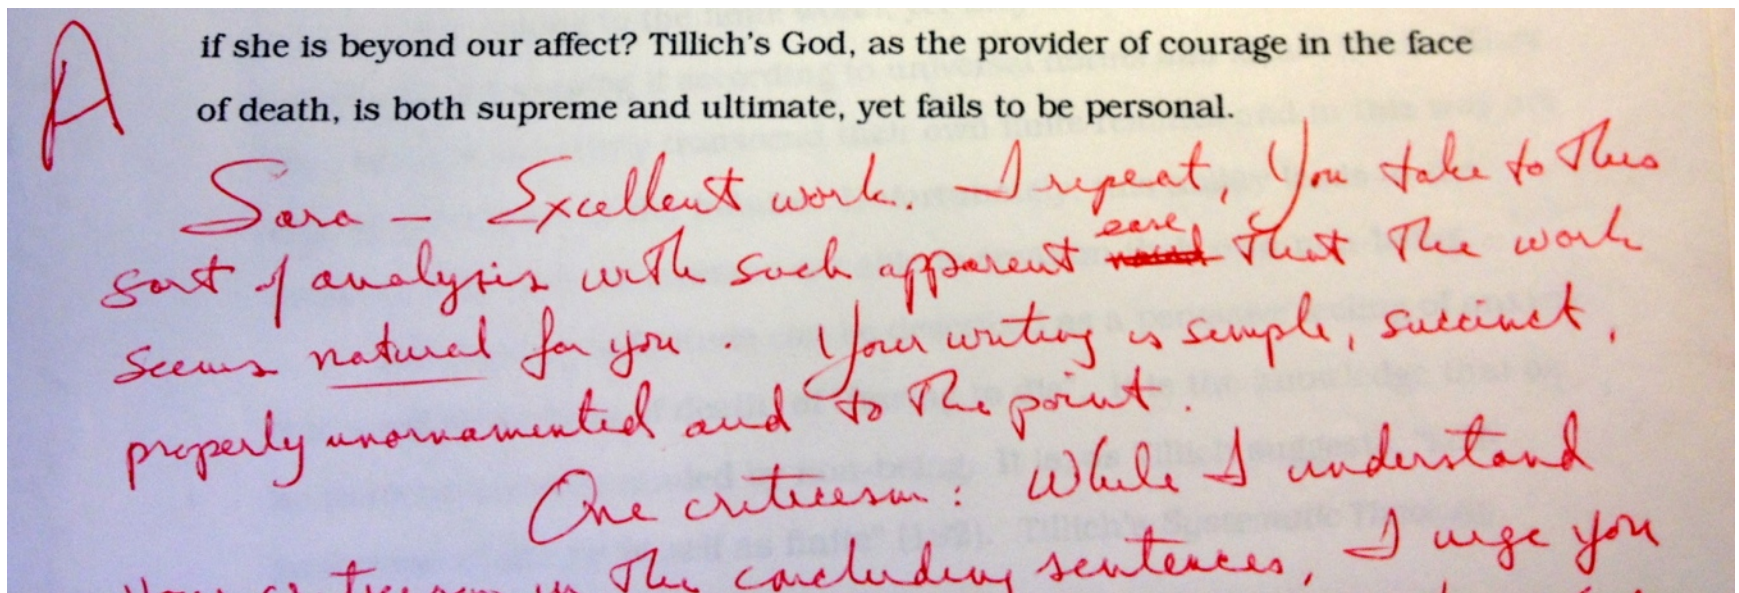 A
if she is beyond our affect? Tillich's God, as the provider of courage in the face
of death, is both supreme and ultimate, yet fails to be personal.
Sara — Excellent work. I repeat, You take to this
ease
sort of analysis with such apparent that the work
seems natural for you. Your writing is simple, succinct,
properly unornamented and to the point.
One criticism: While I understand
your criticism in the concluding sentences, I urge you